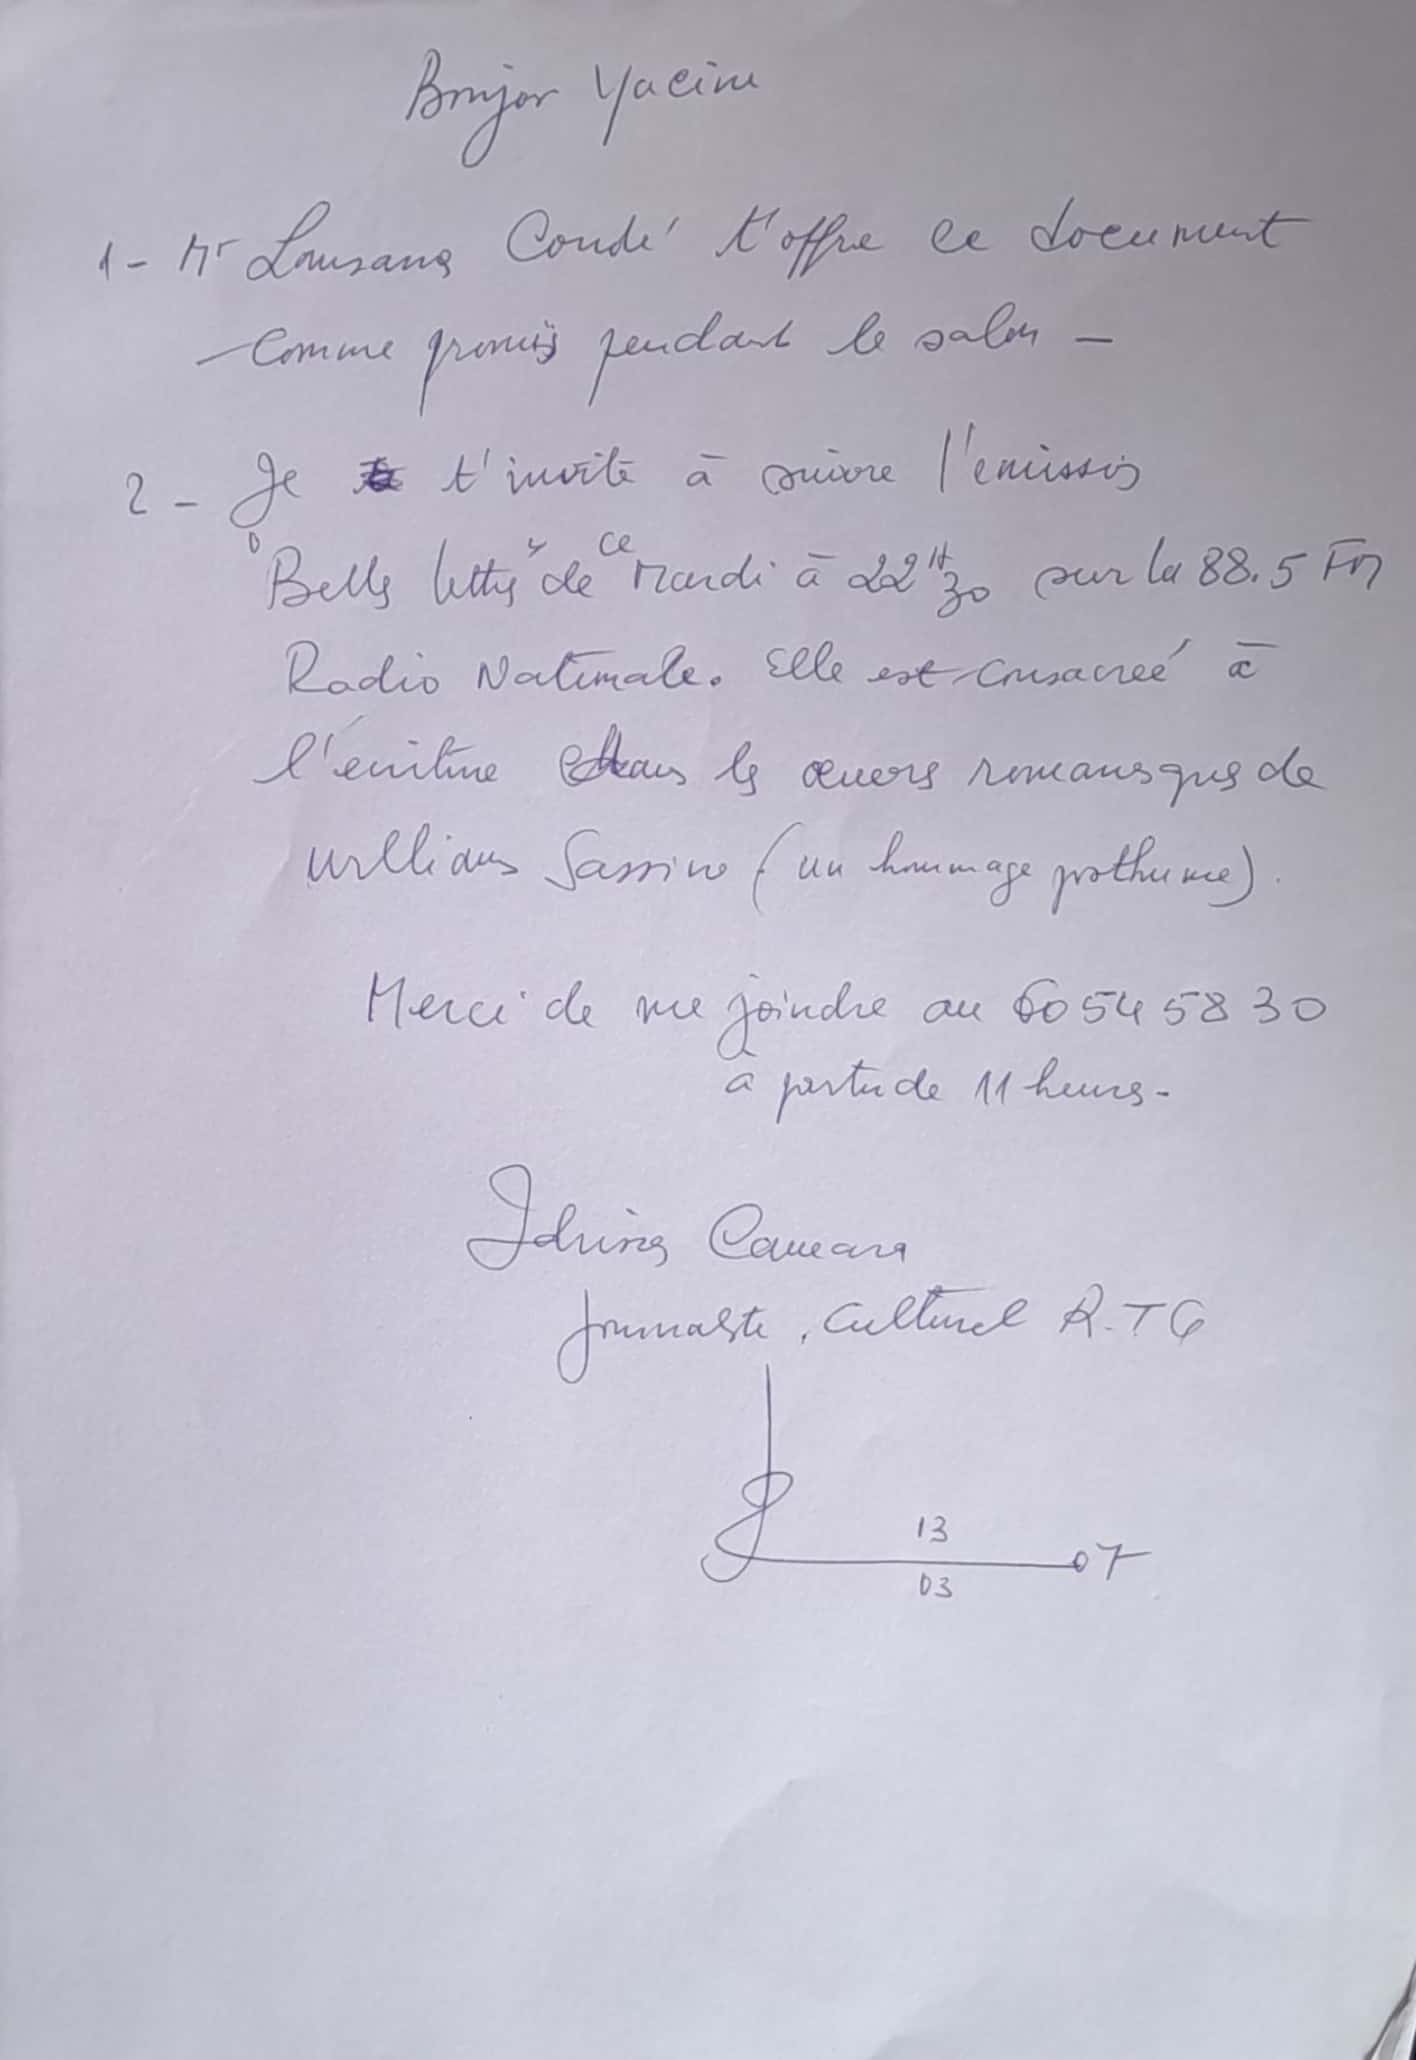 Bonjour Yacine
1 - Mr Lansana Condé t'offre ce document
comme promis pendant le salon -
2 - Je t'invite à suivre l'émission
"Belles lettres" de ce Mardi à 22H30 sur la 88.5 FM
Radio Nationale. Elle est consacrée à
l'écriture dans les œuvres romansques de
Williams Sassine (un hommage posthume).
Merci de me joindre au 60 54 58 30
à partir de 11 heures -
Idrissa Camara
Journaliste, Culturel R.TG
13
03
07